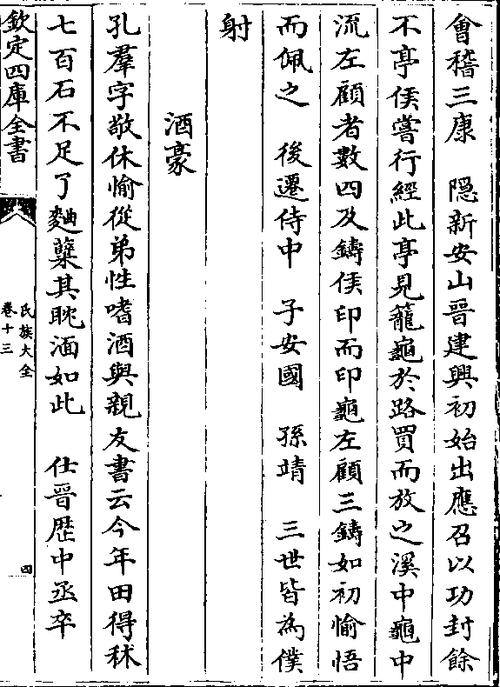 會稽三康　隠新安山晉建興初始出應召以功封餘
不亭侯嘗行經此亭見籠龜於路買而放之溪中龜中
流左顧者數四及鑄侯印而印龜左顧三鑄如初愉悟
而佩之　後遷侍中　子安國　孫靖　三世皆為僕
射
酒豪
孔羣字敬休愉從弟性嗜酒與親友書云今年田得秫
七百石不足了麯蘖其眈湎如此　仕晉歴中丞卒
欽定四庫全書
氏族大全
卷十三
四